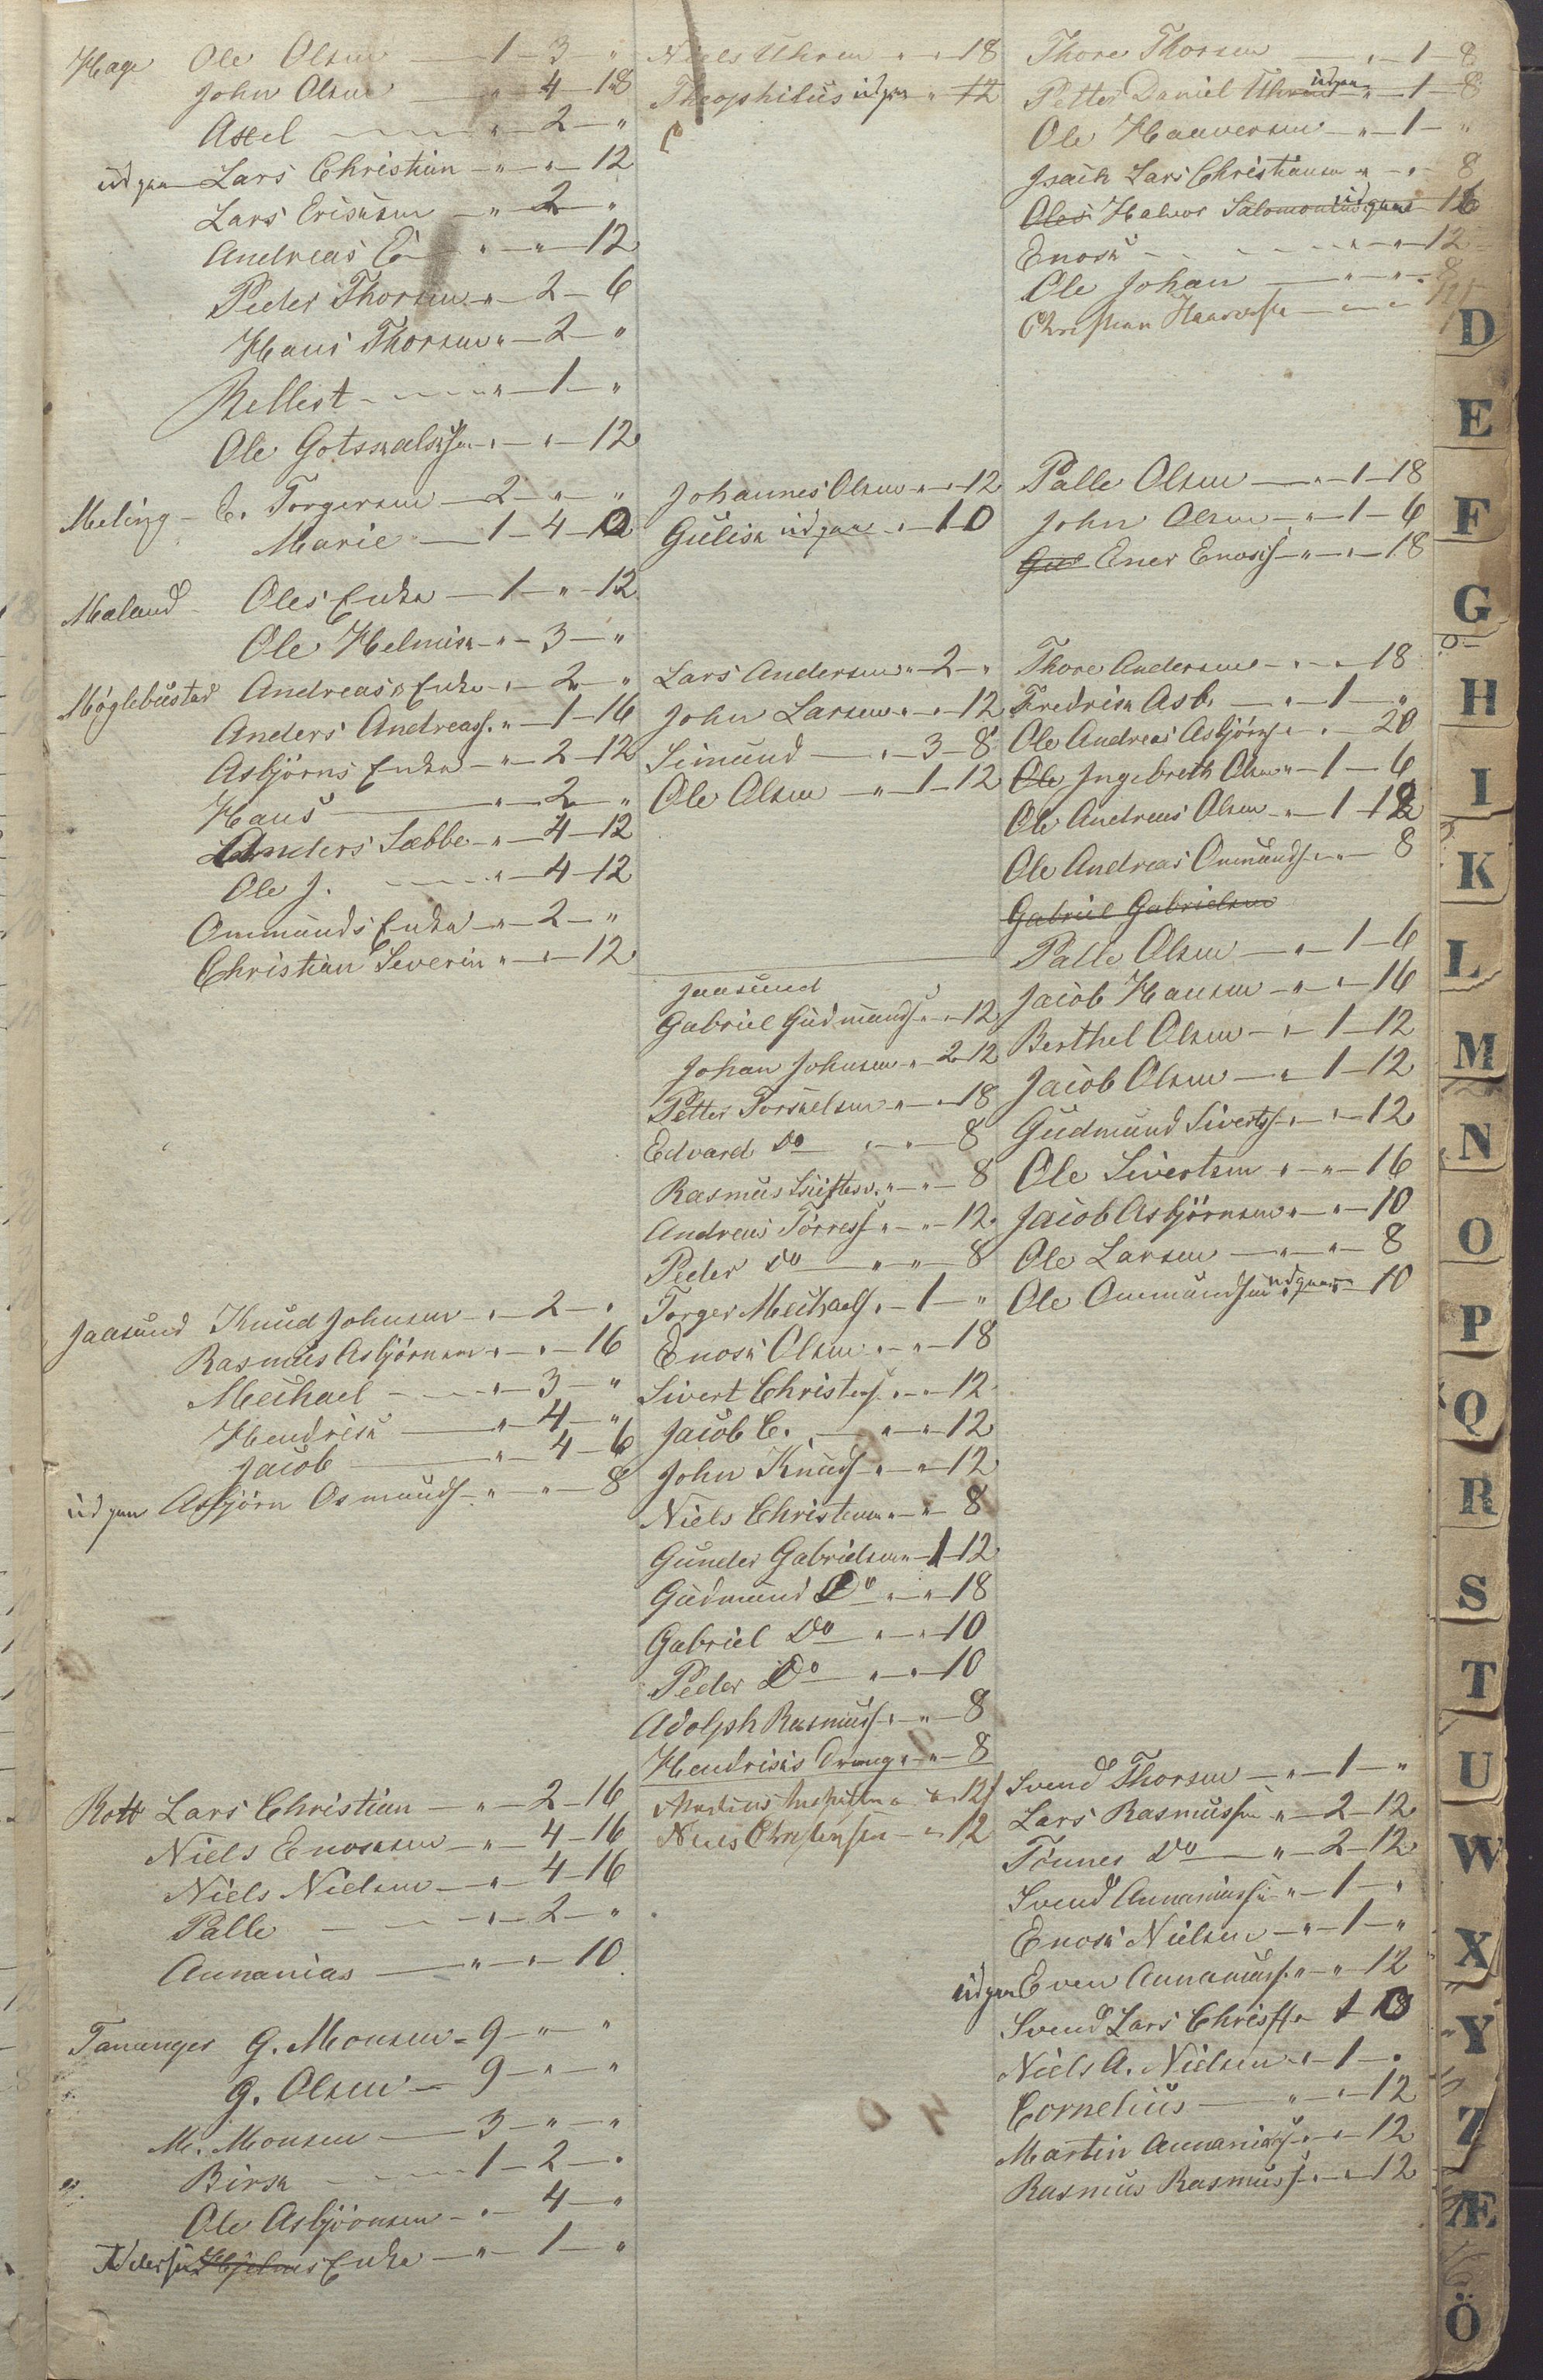 Hage Ole Olsen — 1 — 3 — "
John Olsen — " — 4 — 18
Axel — " — 2 — "
udgaar Lars Christian — " — " — 12
Lars Ericksen — " — 2 — "
Andreas E — " — " — 12
Peder Thorsen — " — 2 — 6
Hans Thorsen — " — 2 — "
Rellest — " — 1 — "
Ole Gotskalks — " — " — 12
Meling — C. Torgersen — 2 — " — "
Marie — 1 — 4 — 12
Mæland — Oles Enke — 1 — " — 12
Ole Helmik — " — 3 — "
Møglebustad Andreas's Enke — " — 2 — "
Anders Andreass. " — 1 — 16
Asbjörns Enke — " — 2 — 12
Hans — " — 2 — "
Anders Sæbbe — " — 4 — 12
Ole J. — " — 4 — 12
Ommunds Enke — " — 2 — "
Christian Severin " — " — 12
Jaasund Knud Johnsen — " — 2 — "
Rasmus Asbjörnsen " — " — 16
Meichael — " — 3 — "
Hendrick — " — 4 — "
Jacob — " — 4 — 6
udgaar Asbjörn Osmunds — " — " — 8
Rott Lars Christian — " — 2 — 16
Niels Enoksen — " — 4 — 16
Niels Nielsen — " — 4 — 16
Palle — " — 2 — "
Annanias — " — " — 10
Tananger G. Monsen — 9 — " — "
G. Olsen — 9 — " — "
M. Monsen — 3 — " — "
Birk — 1 — 2 — "
Ole Asbjörnsen — " — 4 — "
Hjelms Enke — " — 1 — "
Niels Uhren " — " — 18
Theophilus udgaar " 12
Johannes Olsen " — " — 12
Gulik udgaar " — 10
Lars Andersen " — 2 — "
John Larsen " — " — 12
Simund — " — 3 — 8
Ole Olsen — " — 1 — 12
Jaasund
Gabriel Gudmunds " — " 12
Johan Johnsen " — 2 — 12
Petter Torkelsen " — " — 18
Edvard Do " — " — 8
Rasmus " — " — 8
Andreas Törress " — " — 12
Peder Do — " — " — 8
Torger Meichaels " — 1 — "
Enok Olsen " — " — 18
Sivert Christens " — " — 12
Jacob C. — " — " — 12
John Knuds " — " — 12
Niels Christensen " — " — 8
Gunder Gabrielsen " — 1 — 12
Gudmund Do " — " — 18
Gabriel Do — " — " — 10
Peder Do — " — " — 10
Adolph Rasmuss " — " — 8
Hendriks Dreng " — " — 8
" — " 12
Niels Christensen — " 12
Thore Thorsen — " — 1 — 8
Petter Daniel Uhren udgaar " — 1 — 8
Ole Haaversen — " — 1 — "
Isaik Lars Christiansen " — " — 8
Oles Halvor Salomonsen udgaar 16
Enok — " — " — 12
Ole Johan — " — " — 8
Christian
Palle Olsen — " — 1 — 18
John Olsen — " — 1 — 6
Gul Ener Enoks — " — " — 18
Thore Andersen — " — " — 18
Fredrik Asb. — " — 1 — "
Ole Andreas Asbjörns " — " — 20
Ole Ingebreth Olsen " — 1 — 6
Ole Andreas Olsen — " — 1 — 12
Ole Andreas Ommunds " — " — 8
Gabriel Gabrielsen
Palle Olsen — " — 1 — 6
Jacob Hansen — " — " — 16
Berthel Olsen — " — 1 — 12
Jacob Olsen — " — 1 — 12
Gudmund Siverts " — " — 12
Ole Sivertsen " — " — 16
Jacob Asbjörnsen " — " — 10
Ole Larsen — " — " — 8
Ole Ommundsen udgaar — 10
Svend Thorsen — " — 1 — "
Lars Rasmussen " — 2 — 12
Tönnes Do — " — 2 — 12
Svend Annaniassen " — 1 — "
Enok Nielsen — " — 1 — "
udgaar Even Annanias " — " — 12
Svend Lars Christ
Niels A. Nielsen " — 1 — "
Cornelius — " — " — 12
Martin Annanias " — " — 12
Rasmus Rasmuss " — " — 12
D
E
F
G
H
I
K
L
M
N
O
P
Q
R
S
T
U
W
X
Y
Z
Æ
Ö